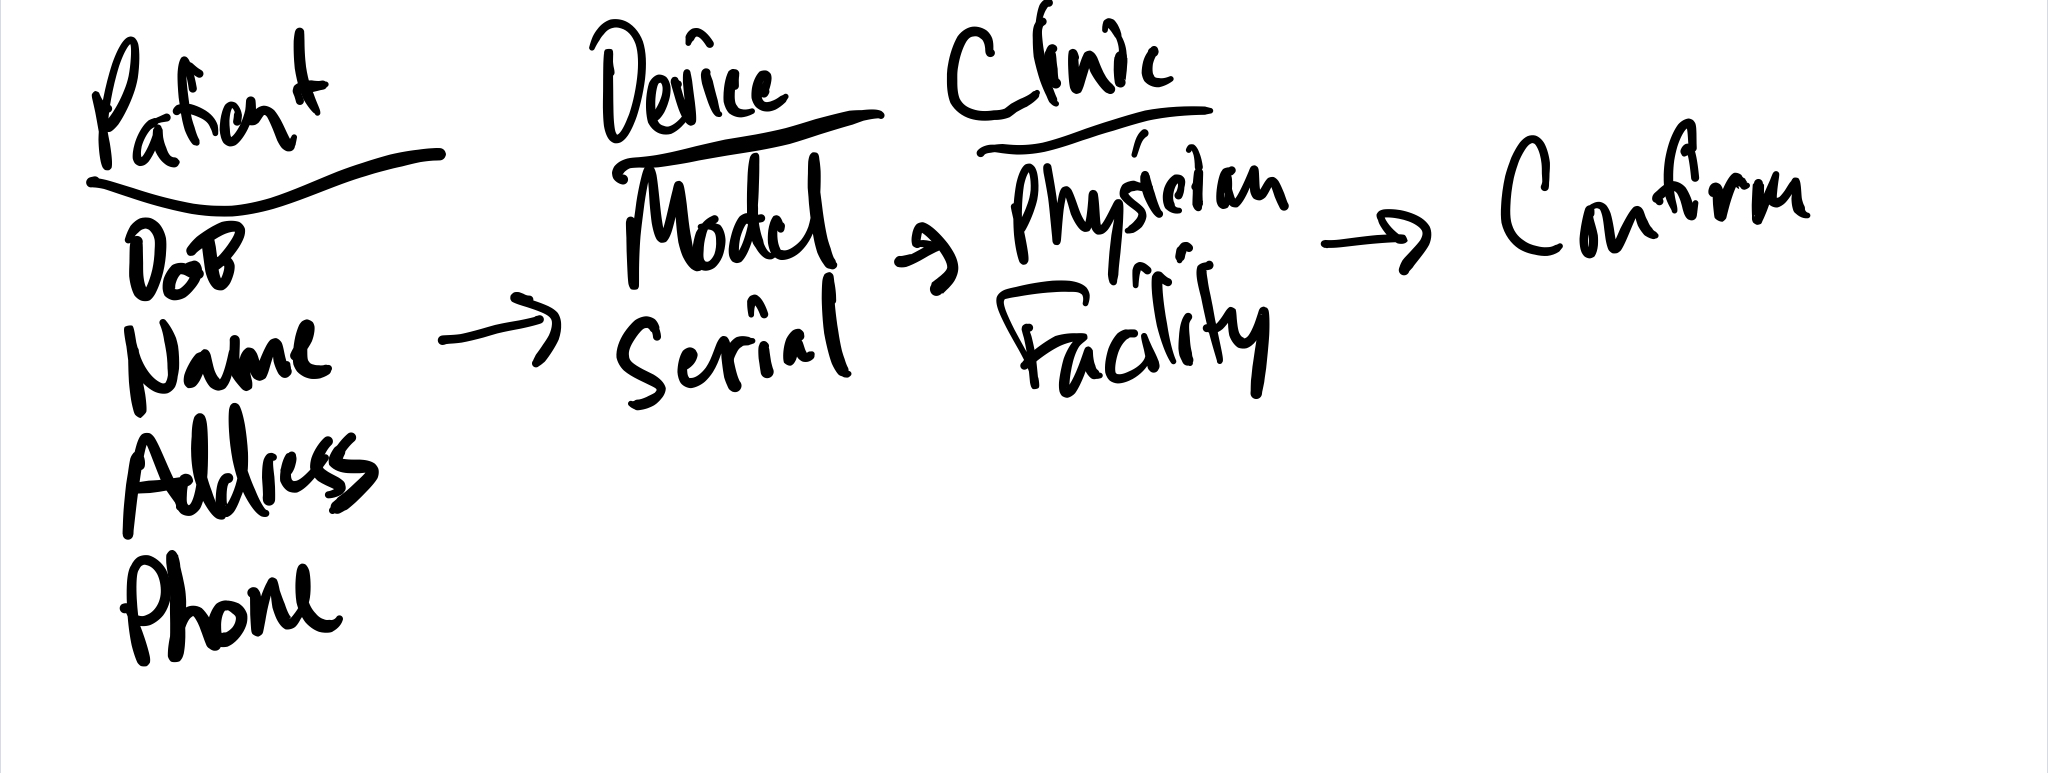 Patient
DoB
Name
Address
Phone
→
Device
Model
Serial
→
Clinic
Physician
Facility
→
Confirm